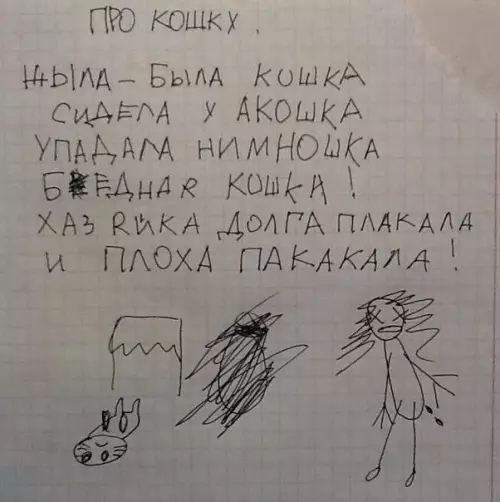 ПРО КОШКУ.
ЖЫЛА - БЫЛА КОШКА
СИДЕЛА У АКОШКА
УПАДАЛА НИМНОШКА
БЕДНАЯ КОШКА!
ХАЗЯЙКА ДОЛГА ПЛАКАЛА
И ПЛОХА ПАКАКАЛА!